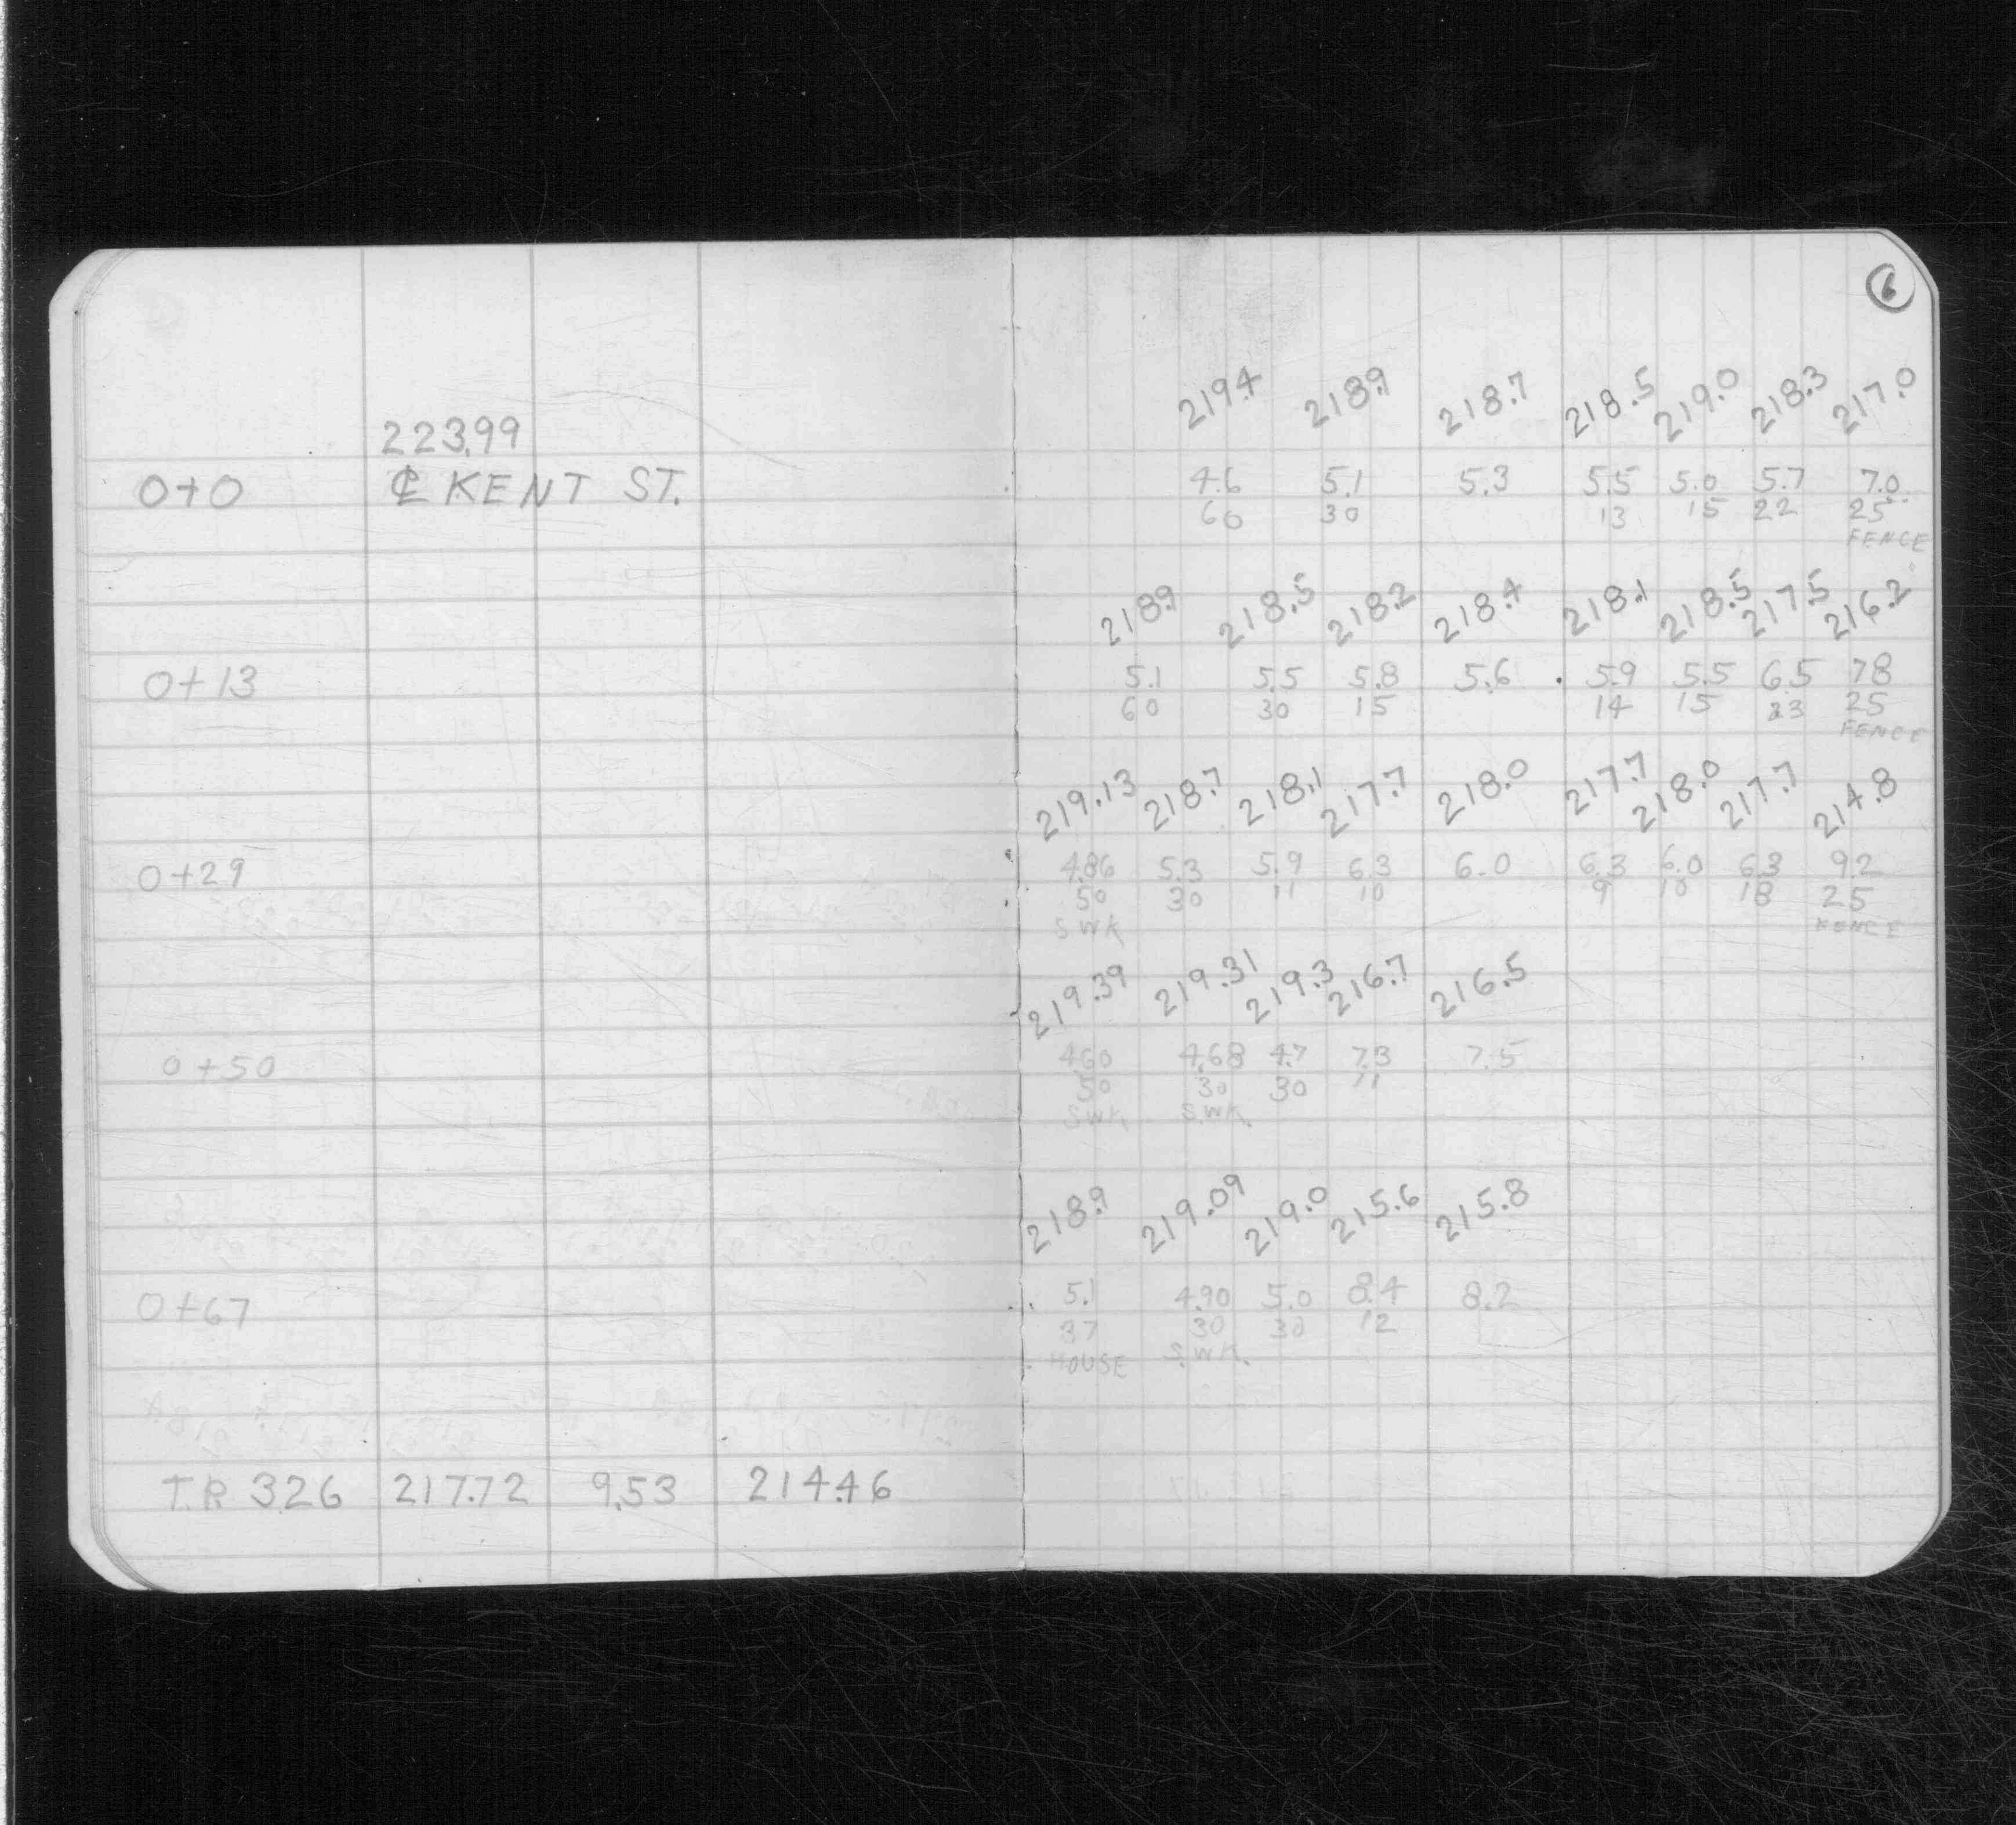 6
219.4 218.9 218.7 218.5 219.0 218.3 217.0
223.99
0+0 ℄ KENT ST. 4.6 5.1 5.3 5.5 5.0 5.7 7.0
60 30 13 15 22 25
FENCE
218.9 218.5 218.2 218.4 218.1 218.5 217.5 216.2
0+13 5.1 5.5 5.8 5.6 5.9 5.5 6.5 7.8
60 30 15 14 15 23 25
FENCE
219.13 218.7 218.1 217.7 218.0 217.7 218.0 217.7 214.8
0+29 4.86 5.3 5.9 6.3 6.0 6.3 6.0 6.3 9.2
50 30 11 10 9 10 18 25
SWK FENCE
219.39 219.31 219.3 216.7 216.5
0+50 4.60 4.68 4.7 7.3 7.5
50 30 30 11
SWK SWK
218.9 219.09 219.0 215.6 215.8
0+67 5.1 4.90 5.0 8.4 8.2
37 30 30 12
HOUSE S.WK.
T.P. 3.26 217.72 9.53 214.46